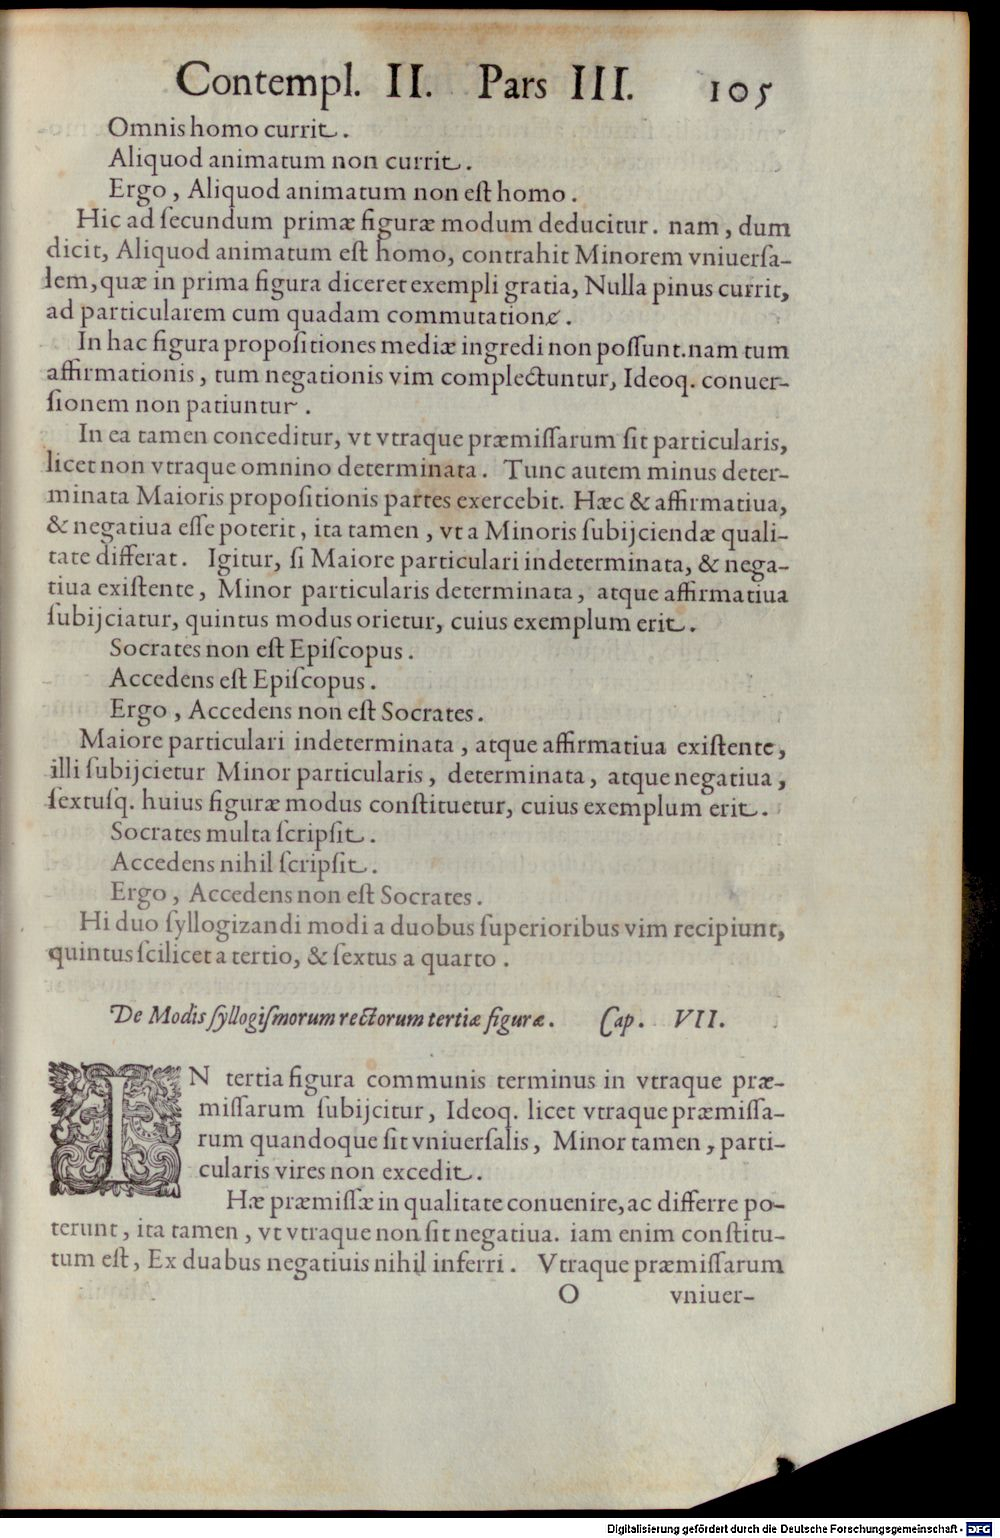 Contempl. II. Pars III. 105
Omnis homo currit.
Aliquod animatum non currit.
Ergo, Aliquod animatum non eſt homo.
Hic ad ſecundum primæ figuræ modum deducitur. nam, dum
dicit, Aliquod animatum eſt homo, contrahit Minorem vniuerſa-
lem, quæ in prima figura diceret exempli gratia, Nulla pinus currit,
ad particularem cum quadam commutatione.
In hac figura propoſitiones mediæ ingredi non poſſunt. nam tum
affirmationis, tum negationis vim complectuntur, Ideoq. conuer-
ſionem non patiuntur.
In ea tamen conceditur, vt vtraque præmiſſarum ſit particularis,
licet non vtraque omnino determinata. Tunc autem minus deter-
minata Maioris propoſitionis partes exercebit. Hæc & affirmatiua,
& negatiua eſſe poterit, ita tamen, vt a Minoris ſubijciendæ quali-
tate differat. Igitur, ſi Maiore particulari indeterminata, & nega-
tiua exiſtente, Minor particularis determinata, atque affirmatiua
ſubijciatur, quintus modus orietur, cuius exemplum erit.
Socrates non eſt Epiſcopus.
Accedens eſt Epiſcopus.
Ergo, Accedens non eſt Socrates.
Maiore particulari indeterminata, atque affirmatiua exiſtente,
illi ſubijcietur Minor particularis, determinata, atque negatiua,
ſextuſq. huius figuræ modus conſtituetur, cuius exemplum erit.
Socrates multa ſcripſit.
Accedens nihil ſcripſit.
Ergo, Accedens non eſt Socrates.
Hi duo ſyllogizandi modi a duobus ſuperioribus vim recipiunt,
quintus ſcilicet a tertio, & ſextus a quarto.
De Modis ſyllogiſmorum rectorum tertiæ figuræ. Cap. VII.
IN tertia figura communis terminus in vtraque præ-
miſſarum ſubijcitur, Ideoq. licet vtraque præmiſſa-
rum quandoque ſit vniuerſalis, Minor tamen, parti-
cularis vires non excedit.
Hæ præmiſſæ in qualitate conuenire, ac differre po-
terunt, ita tamen, vt vtraque non ſit negatiua. iam enim conſtitu-
tum eſt, Ex duabus negatiuis nihil inferri. Vtraque præmiſſarum
O vniuer-
Digitalisierung gefördert durch die Deutsche Forschungsgemeinschaft - DFG